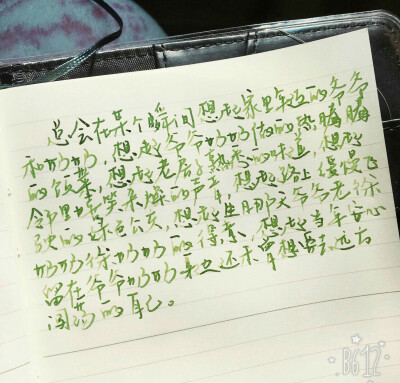 总会在某个瞬间想起家里年迈的爷爷
和奶奶,想起爷爷奶奶做的热腾腾
的饭菜,想起老房子熟悉的味道,想起
邻里间笑来嚷的声音,想起路上慢慢飞
驶的绿色公交,想起生朋友爷爷老徐
奶奶徐奶奶的得意、想起当年安心
留在爷爷奶奶身边还未曾想要去远方
闯荡的自己。
B612